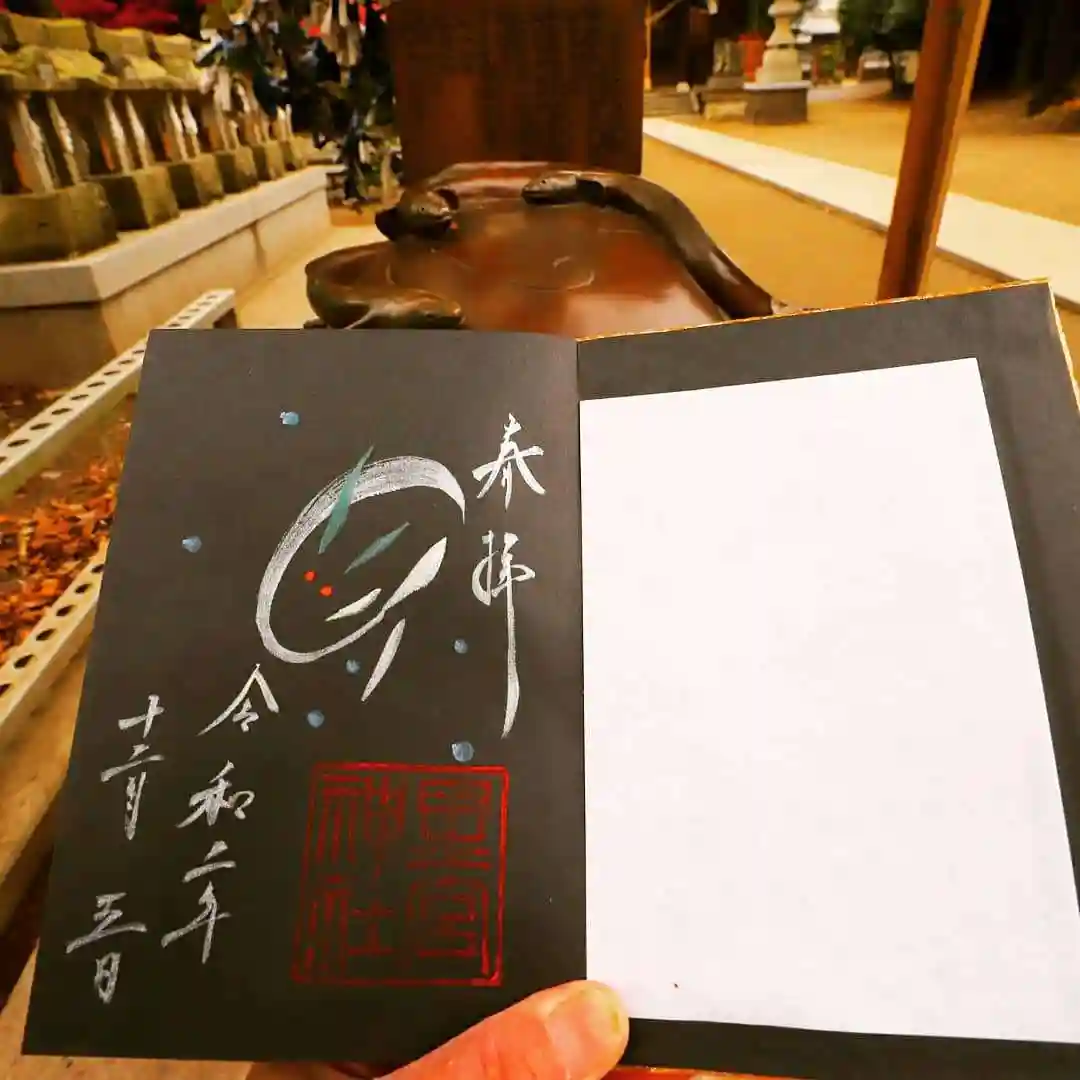 奉拝
令和二年
十二月
三日
星宮
神社